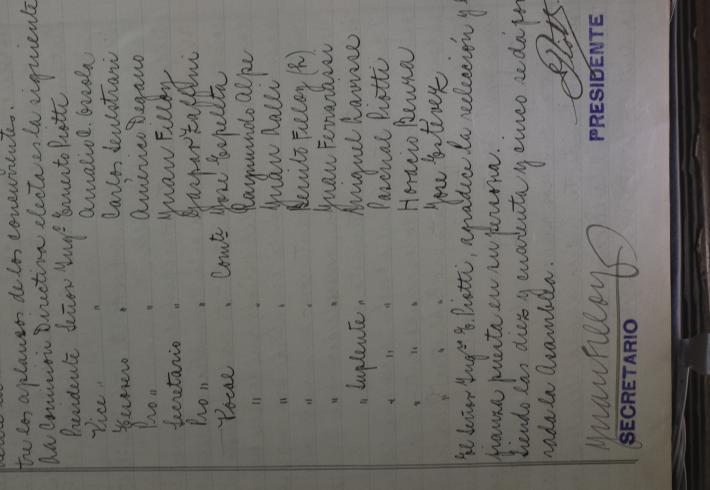 tre los aplausos de los concurrentes.
La Comisión Directiva electa es la siguiente
Presidente Señor Ingº Ernesto Piotti
Vice " " Amadio
Tesorero " Carlos
Pro " " Américo Degano
Secretario " Juan Filloy
Pro " " Gaspar
Vocal " Comte José Espelta
" " Raymundo Alpe
" " Juan Ralli
" " Benito Filloy (h)
" " Juan
" Suplente " Miguel
" " " Pascual Piotti
" " " Horacio
" " " José Estevez
El Señor Ingº E. Piotti, agradece la reelección y
fianza puesta en su persona.
Siendo las diez y cuarenta y cinco se dá por
rada la Asamblea.
Juan Filloy
SECRETARIO
PRESIDENTE